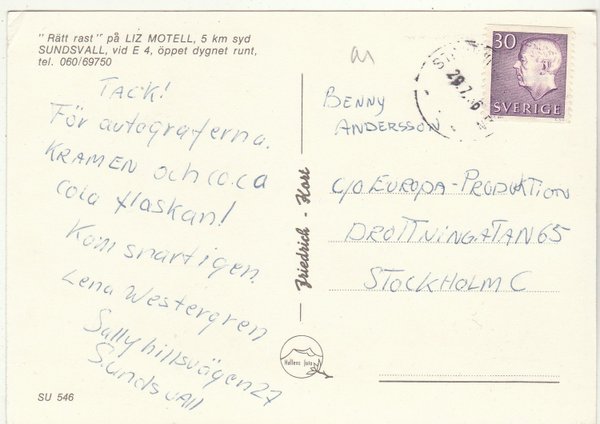 "Rätt rast" på LIZ MOTELL, 5 km syd
SUNDSVALL, vid E 4, öppet dygnet runt,
tel. 060/69750
TACK!
För autograferna.
KRAMEN och coca
cola flaskan!
Kom snart igen.
Lena Westergren
Sallyhillsvägen 27
Sundsvall
SU 546
Friedrich - Kort
Hallens foto
30
SVERIGE
BENNY
ANDERSSON
C/O EUROPA-PRODUKTION
DROTTNINGATAN 65
STOCKHOLM C